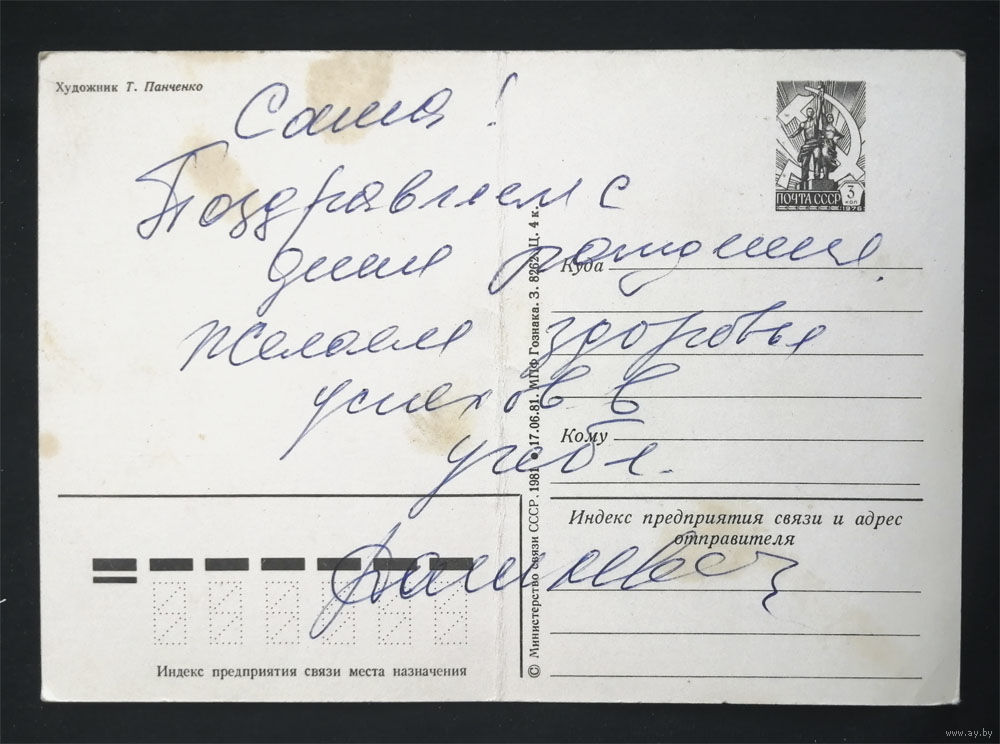 Художник Т. Панченко
Саша!
Поздравляем с
днем рождения.
Желаем здоровья
успехов в
учебе.
ПОЧТА СССР
3
коп
1976
Куда
Кому
© Министерство связи СССР. 1981 ● 17.06.81. МПФ Гознака. З. 8262. Ц. 4 к.
Индекс предприятия связи и адрес
отправителя
Индекс предприятия связи места назначения
www.ay.by